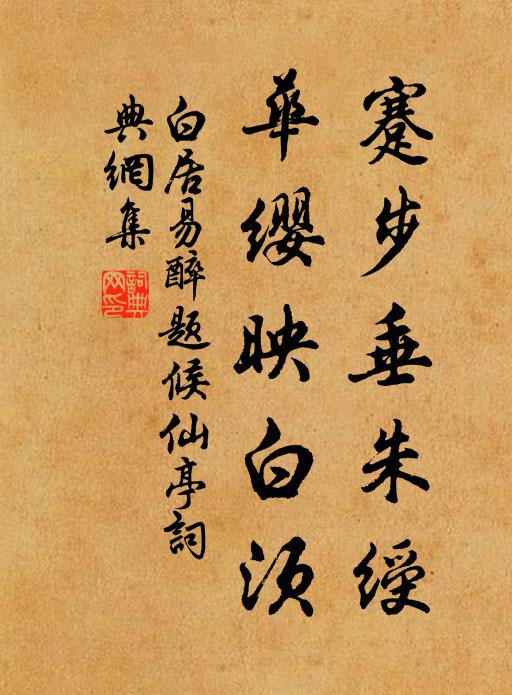 蹇步垂朱綬
華纓映白須
白居易醉題候仙亭詞
典網集
詞典網印